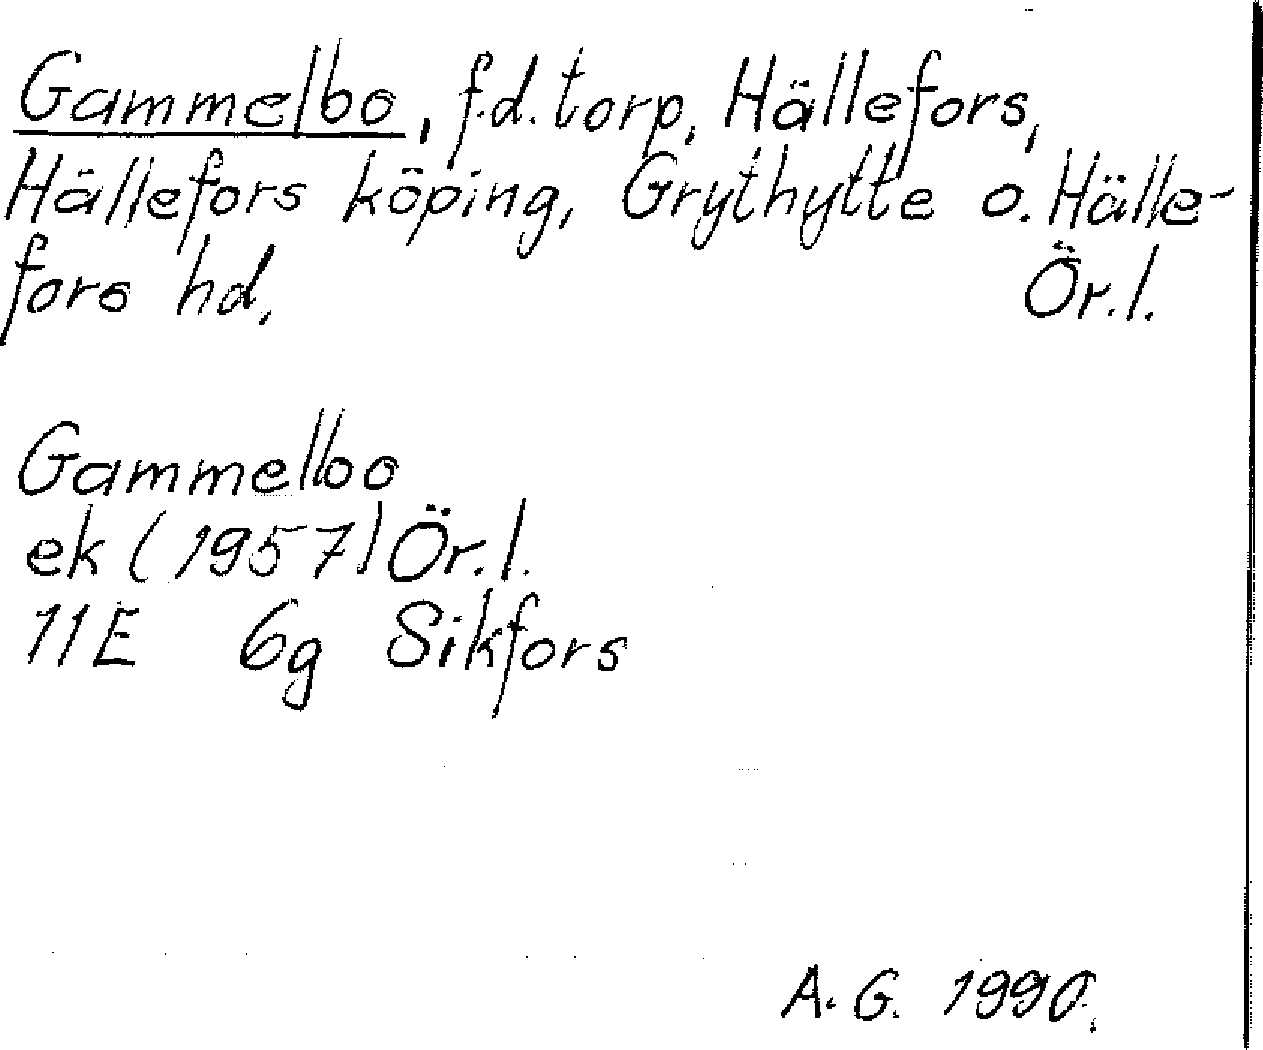 Gammelbo, f.d. torp, Hällefors,
Hällefors köping, Grythytte o. Hälle-
fors hd, Ör.l.
Gammelbo
ek (1957) Ör.l.
11E 6g Sikfors
A.G. 1990.